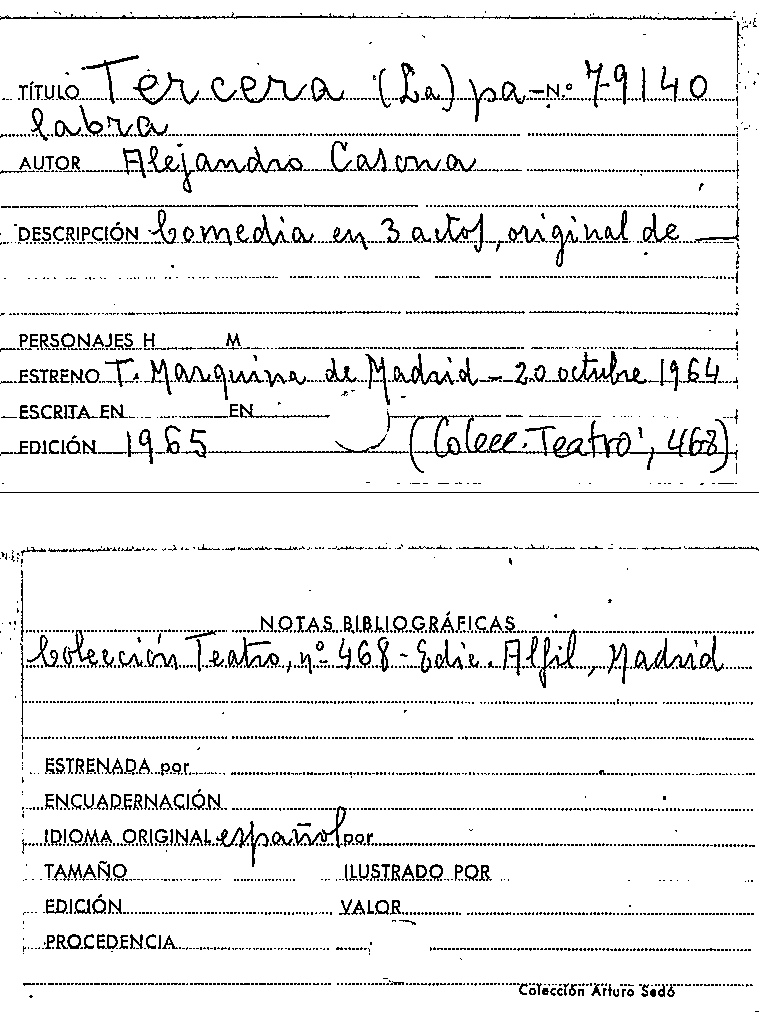 TÍTULO Tercera (La) pa- N.º 79140
labra
AUTOR Alejandro Casona
DESCRIPCIÓN Comedia en 3 actos, original de —
PERSONAJES H M
ESTRENO T. Marquina de Madrid - 20 octubre 1964
ESCRITA EN EN
EDICIÓN 1965 (Colecc. Teatro', 468)
NOTAS BIBLIOGRÁFICAS
Colección Teatro, nº 468 - Edic. Alfil, Madrid
ESTRENADA por
ENCUADERNACIÓN
IDIOMA ORIGINAL español por
TAMAÑO ILUSTRADO POR
EDICIÓN VALOR
PROCEDENCIA
Colección Arturo Sedó